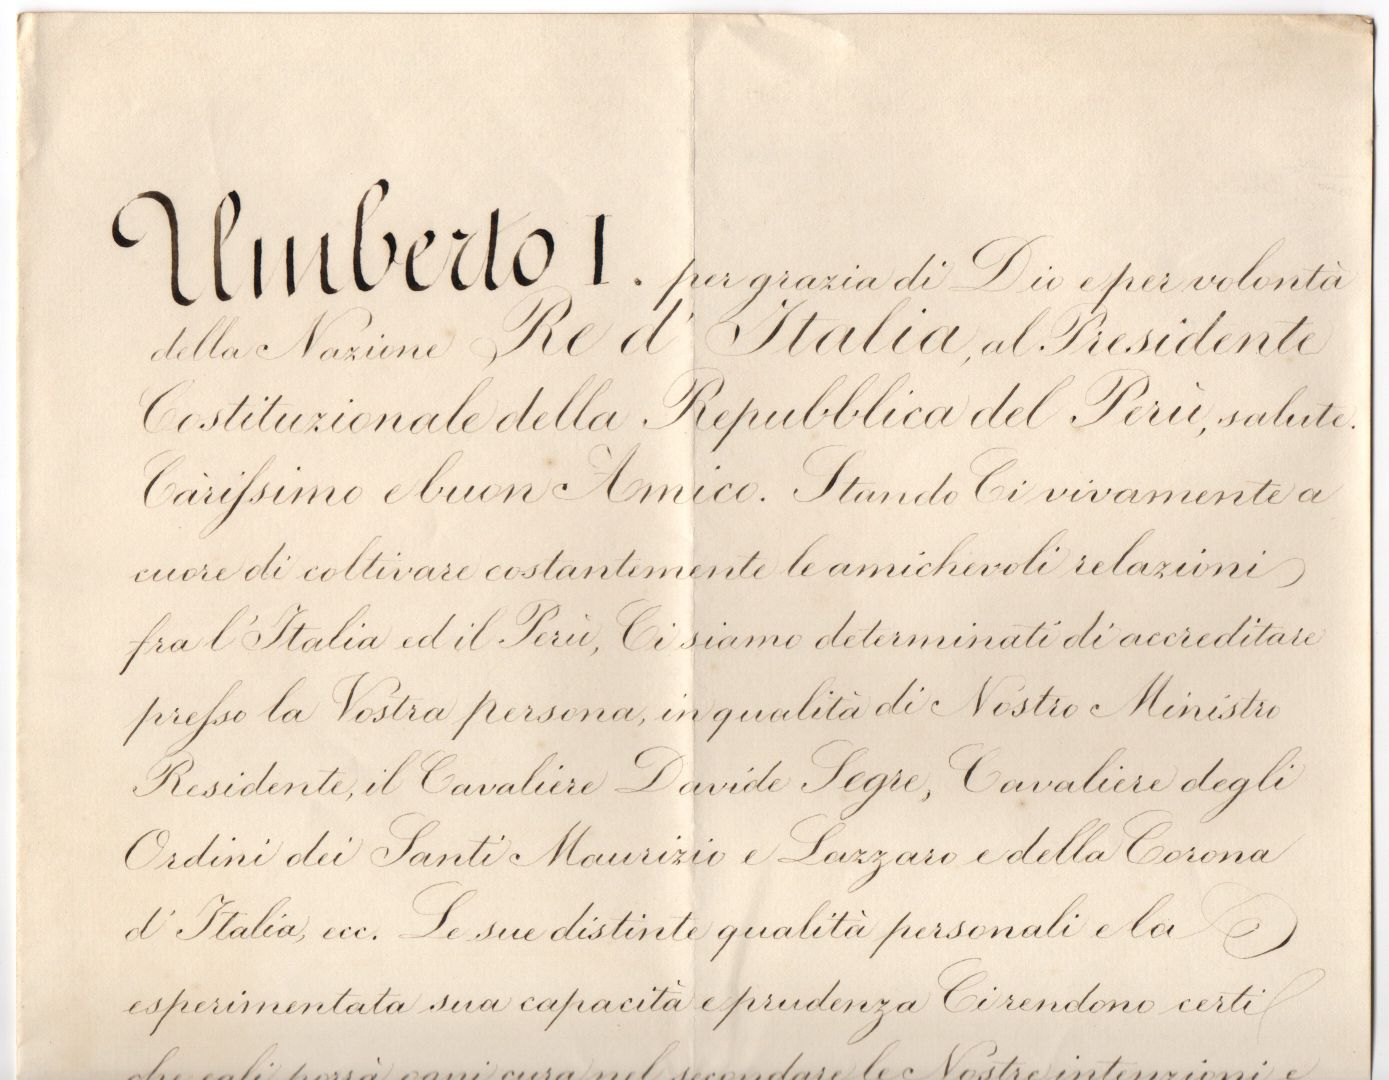 Umberto I. per grazia di Dio e per volontà
della Nazione Re d' Italia, al Presidente
Costituzionale della Repubblica del Perù, salute.
Carissimo e buon Amico. Stando Ci vivamente a
cuore di coltivare costantemente le amichevoli relazioni
fra l'Italia ed il Perù, Ci siamo determinati di accreditare
presso la Vostra persona, in qualità di Nostro Ministro
Residente, il Cavaliere Davide Segre, Cavaliere degli
Ordini dei Santi Maurizio e Lazzaro e della Corona
d' Italia, ecc. Le sue distinte qualità personali e la
esperimentata sua capacità e prudenza Ci rendono certi
che egli porrà ogni cura nel secondare le Nostre intenzioni e